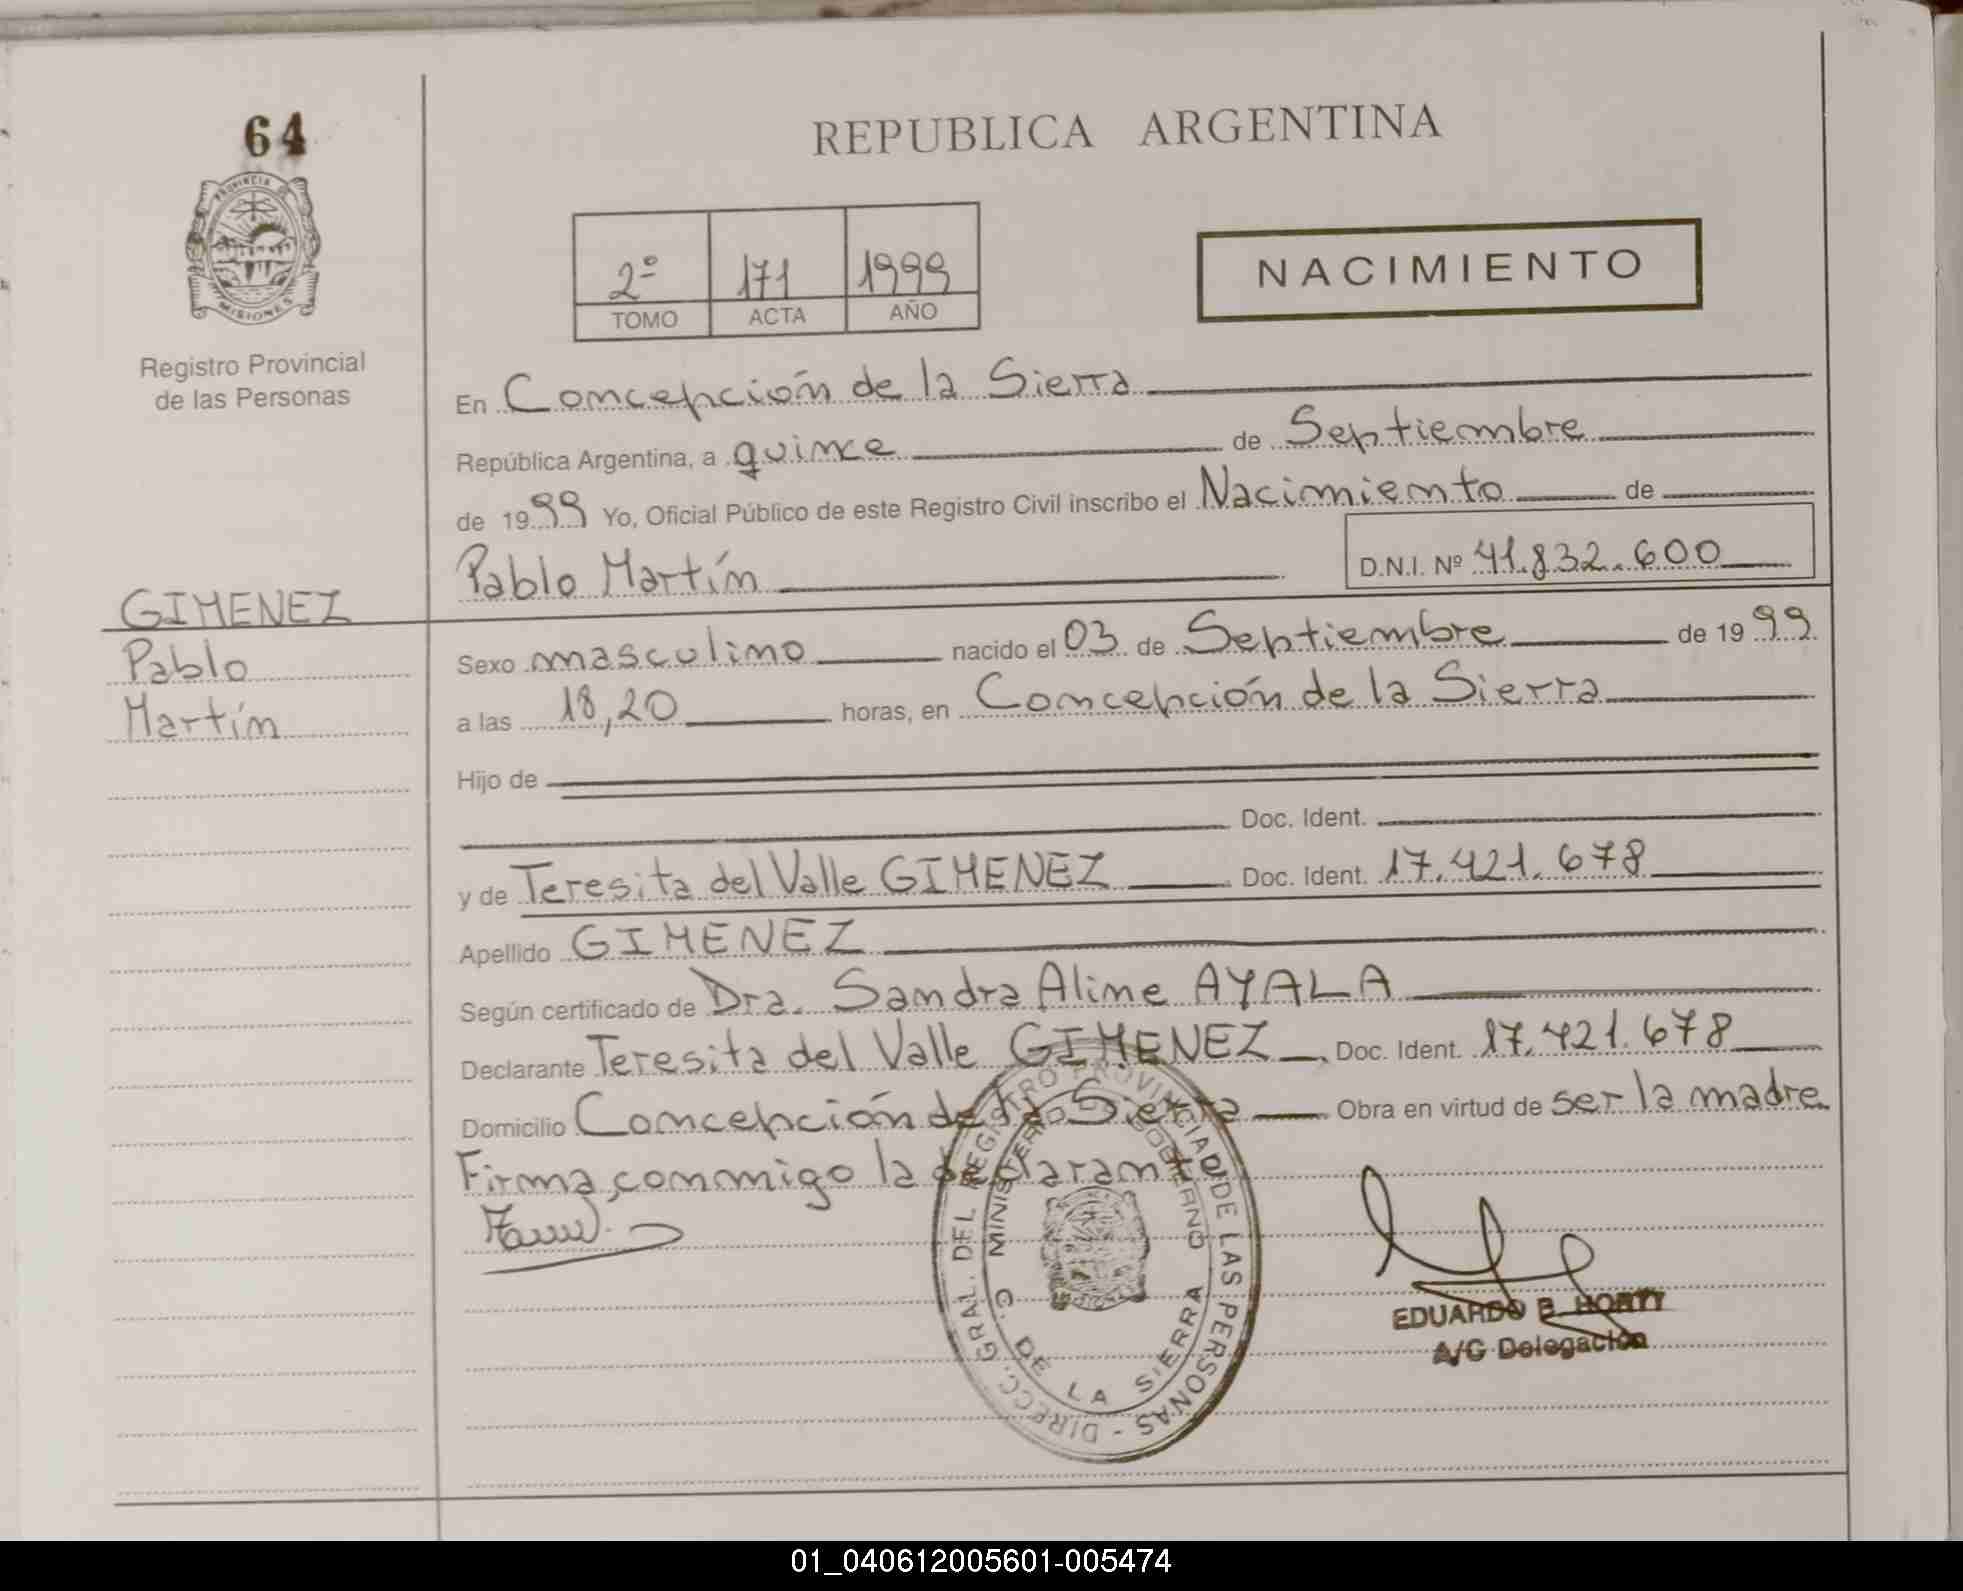 64
PROVINCIA DE
MISIONES
Registro Provincial
de las Personas
GIMENEZ
Pablo
Martín
REPUBLICA ARGENTINA
2º 171 1999
TOMO ACTA AÑO
NACIMIENTO
En Concepción de la Sierra
República Argentina, a quince de Septiembre
de 1999 Yo, Oficial Público de este Registro Civil inscribo el Nacimiento de
Pablo Martín D.N.I. Nº 41.832.600
Sexo masculino nacido el 03 de Septiembre de 1999
a las 18,20 horas, en Concepción de la Sierra
Hijo de
Doc. Ident.
y de Teresita del Valle GIMENEZ Doc. Ident. 17.421.678
Apellido GIMENEZ
Según certificado de Dra. Sandra Aline AYALA
Declarante Teresita del Valle GIMENEZ Doc. Ident. 17.421.678
Domicilio Concepción de la Sierra Obra en virtud de ser la madre
Firma conmigo la declarante
DIRECC. GRAL. DEL REGISTRO PROVINCIAL DE LAS PERSONAS -
MINISTERIO DE GOBIERNO
C. DE LA SIERRA
EDUARDO E. HORTT
A/C Delegación
01_040612005601-005474